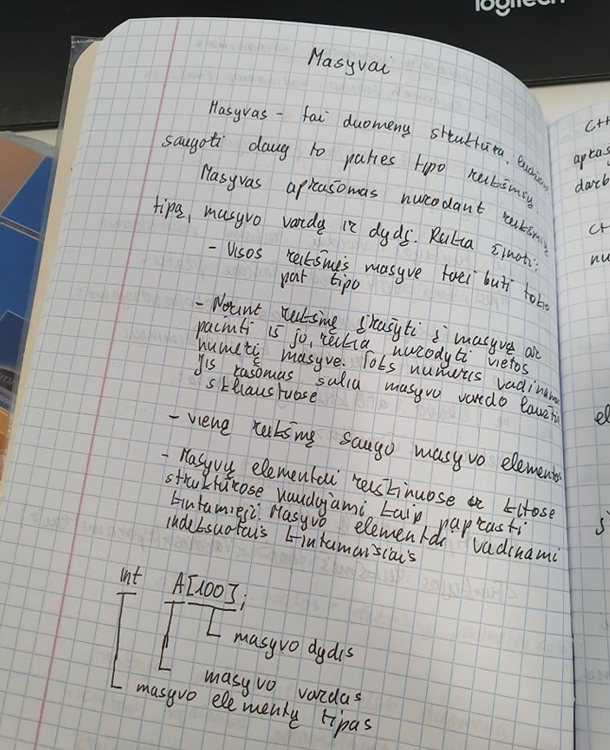 logitech
Masyvai
Masyvas - tai duomenų struktūra,
saugoti daug to paties tipo reikšmių.
Masyvas aprašomas nurodant reikšmių
tipą, masyvo vardą ir dydį. Reikia žinoti:
- Visos reikšmės masyve turi būti tokio
pat tipo
- Norint reikšmę įrašyti į masyvą ar
paimti iš jo, reikia nurodyti vietos
numerį masyve. Toks numeris vadinamas
Jis rašomas šalia masyvo vardo
skliaustuose
- vieną reikšmę saugo masyvo elementas
- Masyvų elementai reiškiniuose ir kitose
struktūrose naudojami kaip paprasti
kintamieji. Masyvo elementai vadinami
indeksuotais kintamaisiais
int A[100];
masyvo dydis
masyvo vardas
masyvo elementų tipas
C++
apraš
darb
C+
nu
el